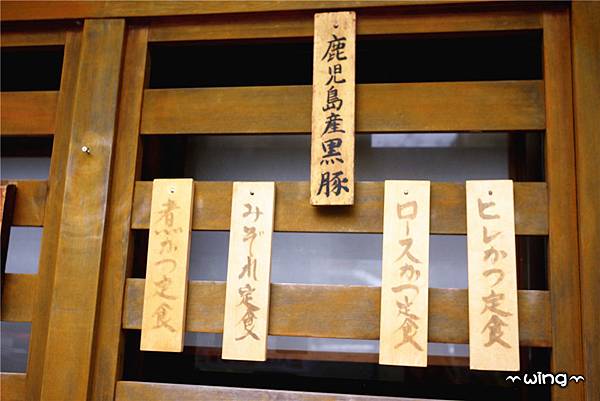 鹿児島産黒豚
ヒレかつ定食
ロースかつ定食
みぞれ定食
煮かつ定食
~wing~